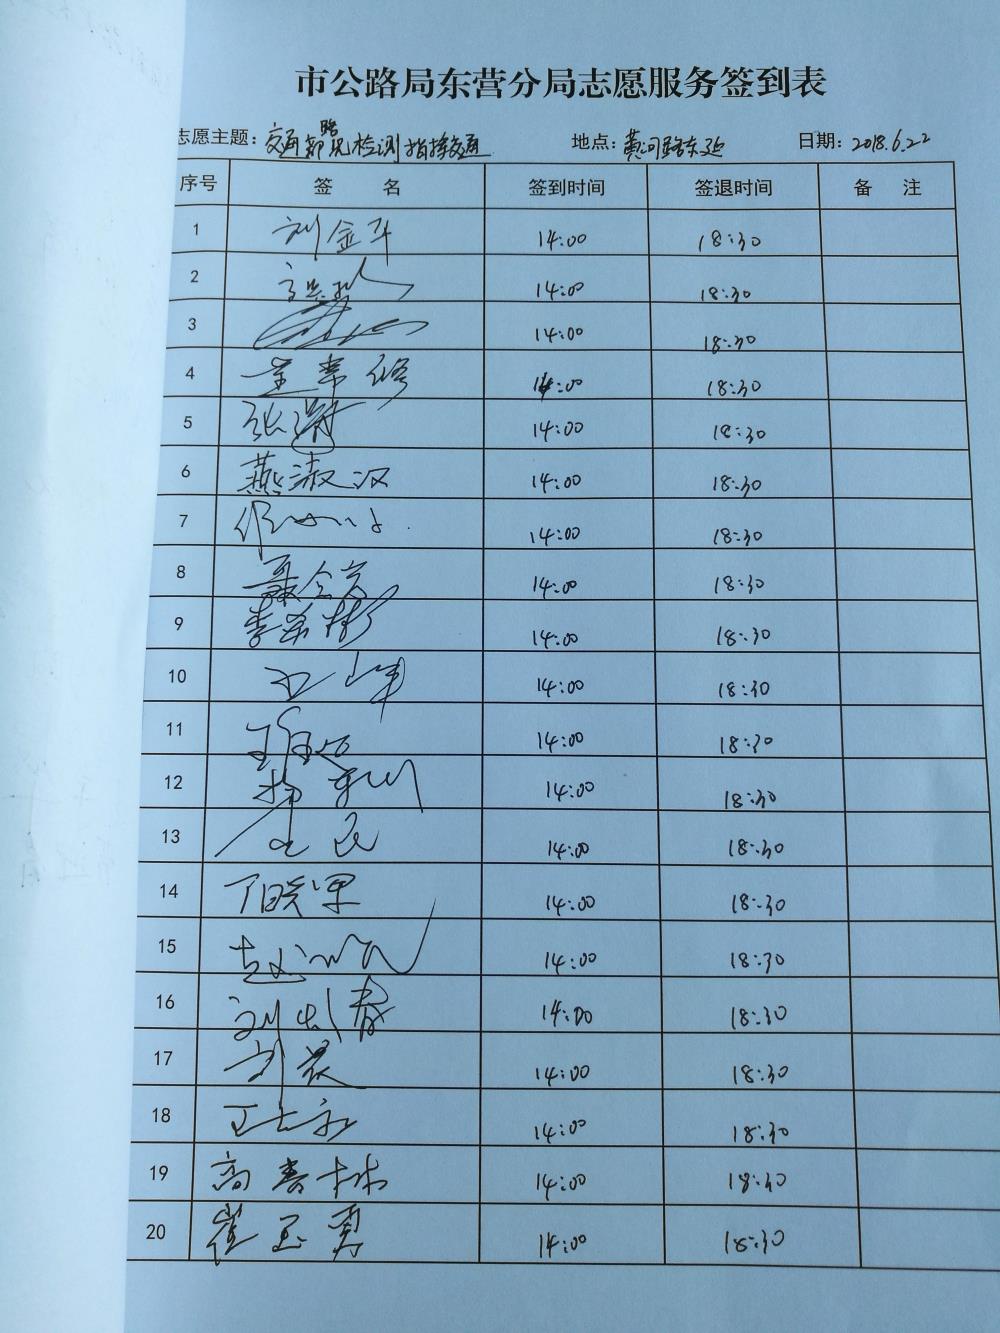 市公路局东营分局志愿服务签到表
志愿主题：交通路况检测指挥交通 地点：黄河路东延 日期：2018.6.22
序号 签 名 签到时间 签退时间 备 注
1 刘金斗 14:00 18:30
2 14:00 18:30
3 14:00 18:30
4 14:00 18:30
5 张 14:00 18:30
6 燕淑汉 14:00 18:30
7 14:00 18:30
8 聂 14:00 18:30
9 李荣彬 14:00 18:30
10 14:00 18:30
11 王 14:00 18:30
12 杨 14:00 18:30
13 14:00 18:30
14 14:00 18:30
15 赵 14:00 18:30
16 刘 春 14:00 18:30
17 刘 14:00 18:30
18 14:00 18:30
19 高春林 14:00 18:30
20 崔玉勇 14:00 18:30